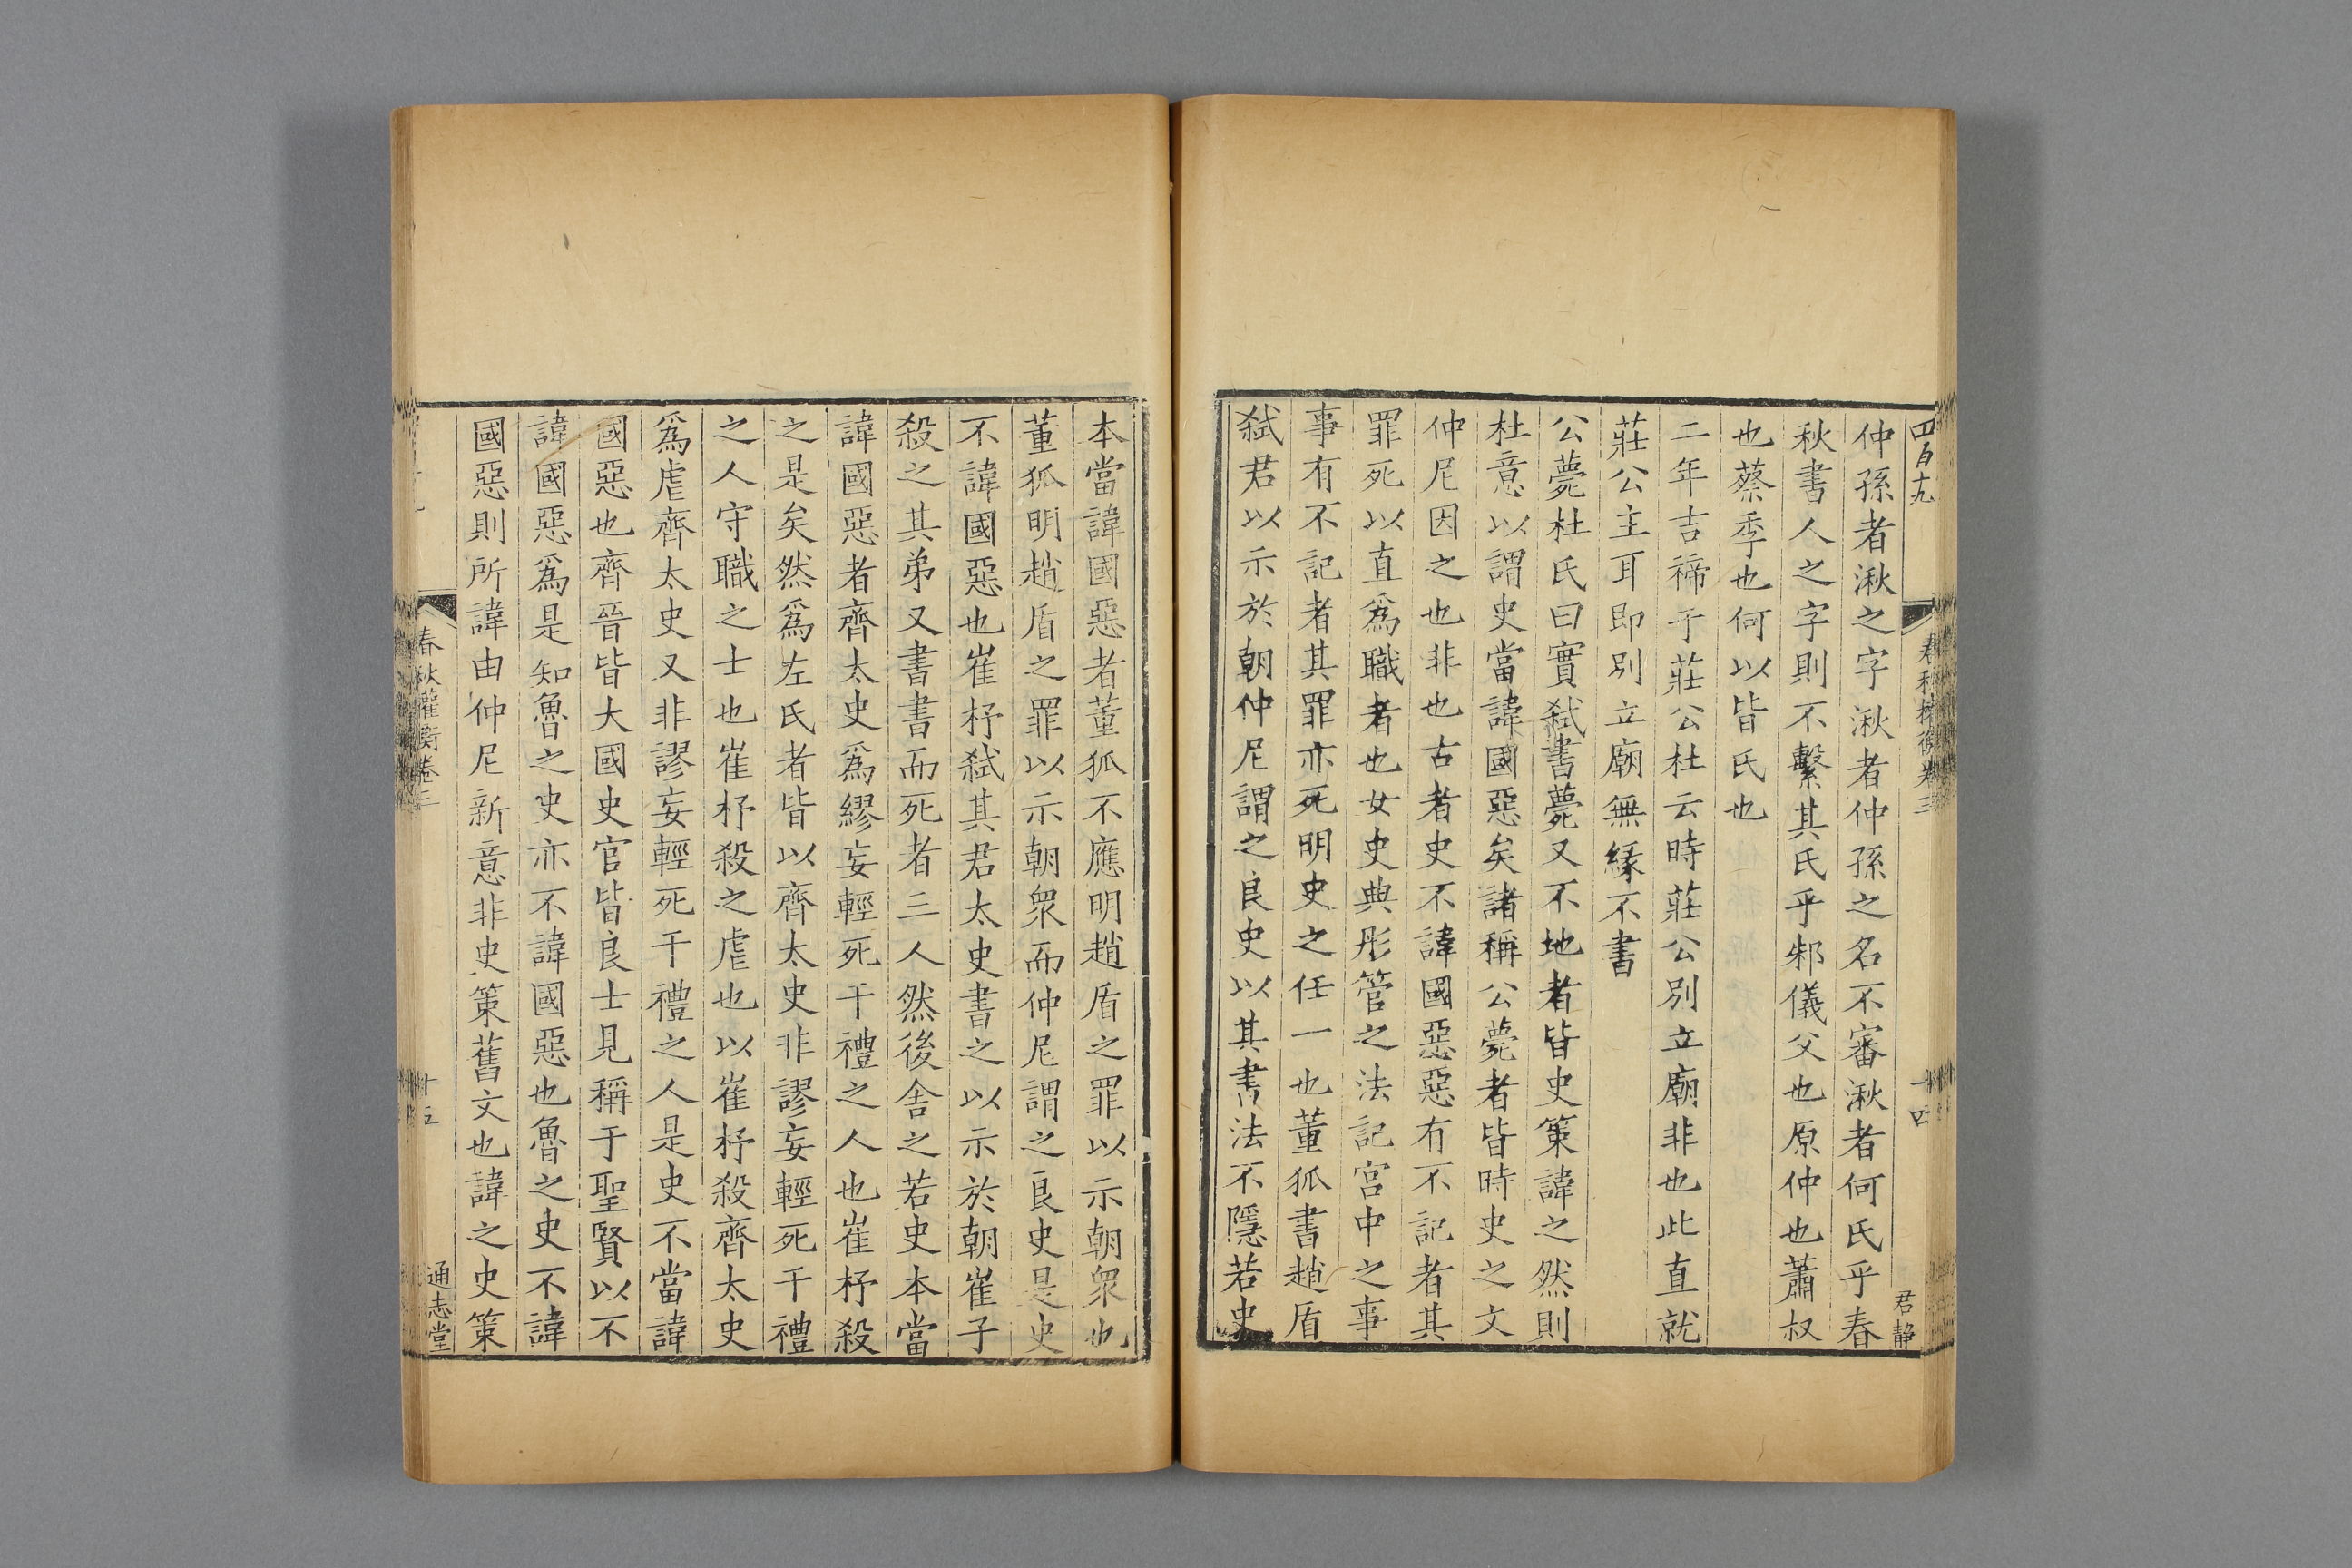 四百十九
春秋權衡卷三
十四
君靜
仲孫者湫之字湫者仲孫之名不審湫者何氏乎春
秋書人之字則不繫其氏乎邾儀父也原仲也蕭叔
也蔡季也何以皆氏也
二年吉禘于莊公杜云時莊公別立廟非也此直就
莊公主耳即別立廟無緣不書
公薨杜氏曰實弒書薨又不地者皆史策諱之然則
杜意以謂史當諱國惡矣諸稱公薨者皆時史之文
仲尼因之也非也古者史不諱國惡惡有不記者其
罪死以直爲職者也女史典彤管之法記宮中之事
事有不記者其罪亦死明史之任一也董狐書趙盾
弒君以示於朝仲尼謂之良史以其書法不隱若史
本當諱國惡者董狐不應明趙盾之罪以示朝衆也
董狐明趙盾之罪以示朝衆而仲尼謂之良史是史
不諱國惡也崔杼弒其君太史書之以示於朝崔子
殺之其弟又書書而死者三人然後舍之若史本當
諱國惡者齊太史爲繆妄輕死干禮之人也崔杼殺
之是矣然爲左氏者皆以齊太史非謬妄輕死干禮
之人守職之士也崔杼殺之虐也以崔杼殺齊太史
爲虐齊太史又非謬妄輕死干禮之人是史不當諱
國惡也齊晉皆大國史官皆良士見稱于聖賢以不
諱國惡爲是知魯之史亦不諱國惡也魯之史不諱
國惡則所諱由仲尼新意非史策舊文也諱之史策
春秋權衡卷三
十五
通志堂